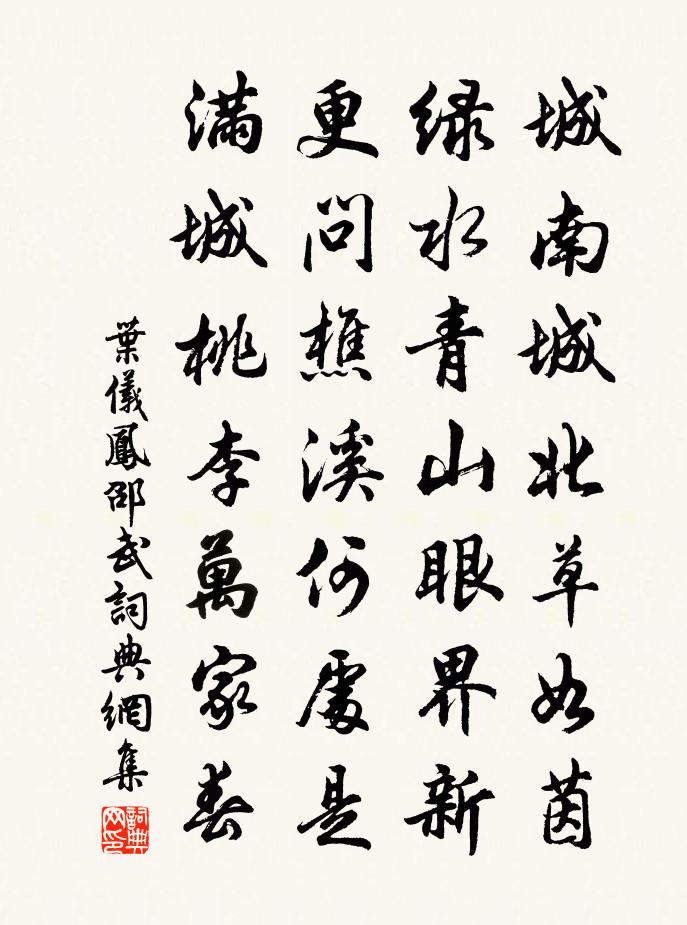 城南城北草如茵
緑水青山眼界新
更問樵溪何處是
滿城桃李萬家春
葉儀鳳邵武詞典網集
詞典
网印